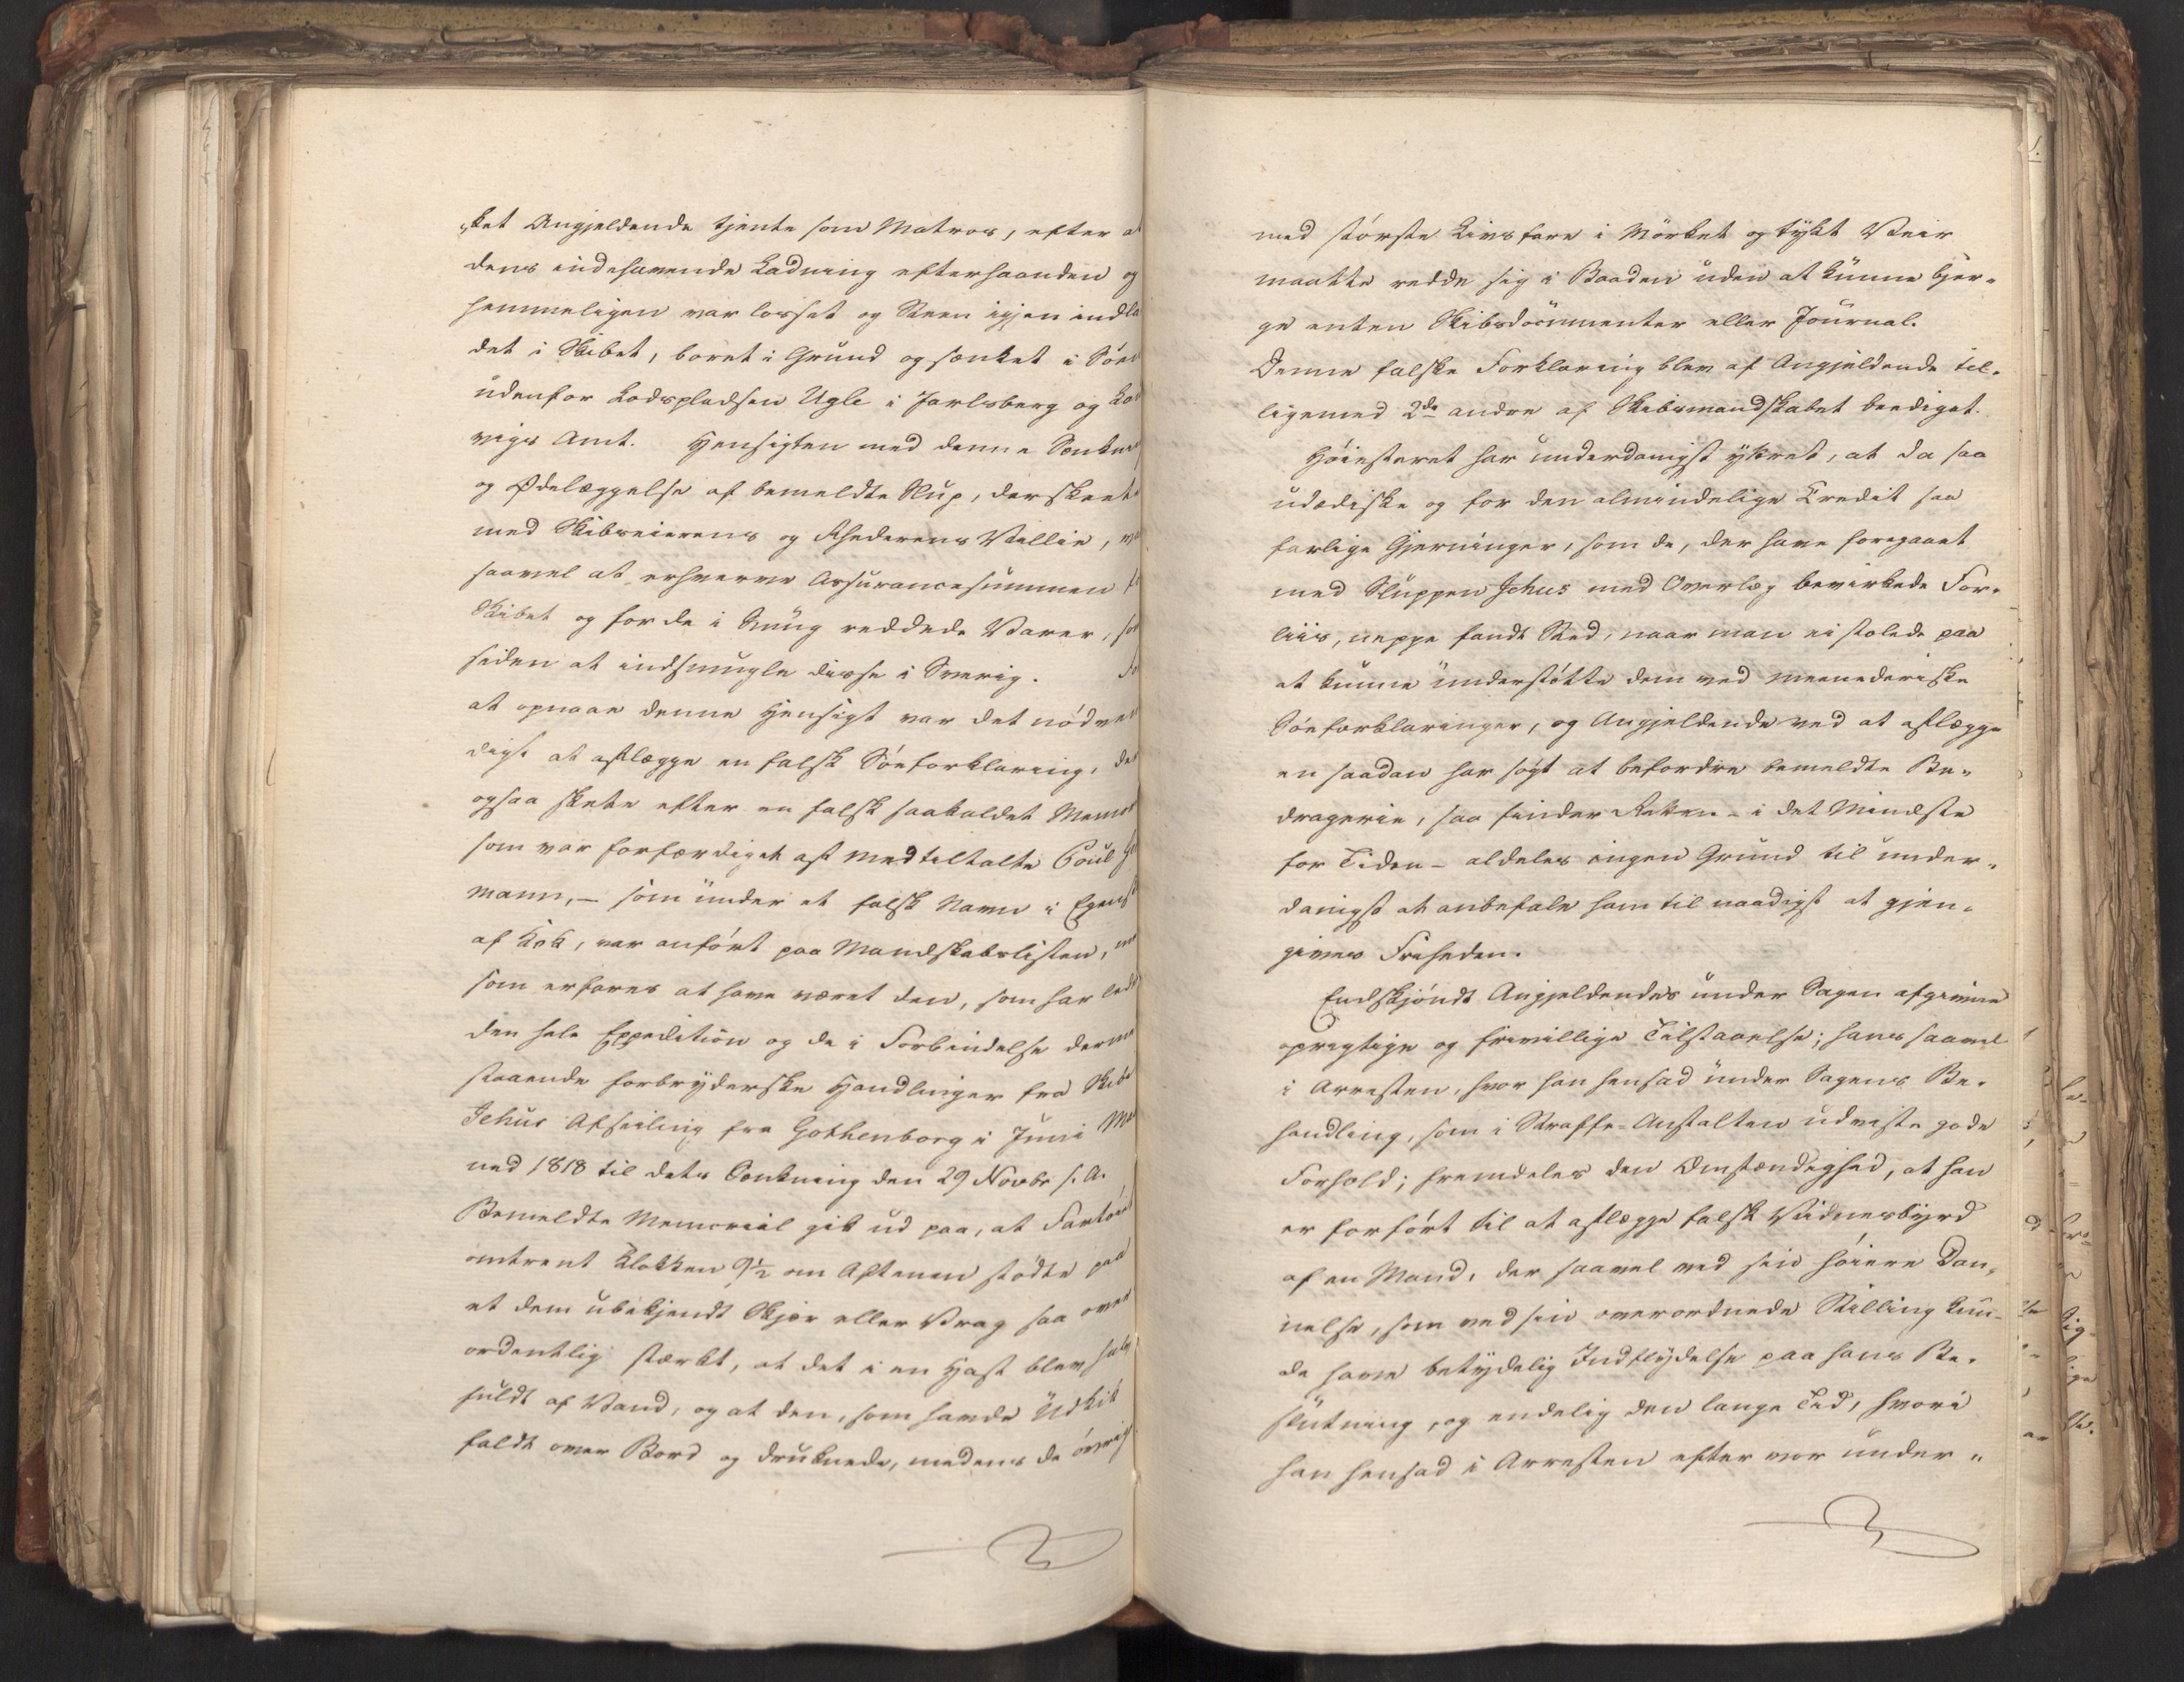 ket Angjeldende tjente som Matros, efter at
dens indehavende Ladning efterhaanden og
hemmeligen var losset og Steen igjen indla
det i Skibet, boret i Grund og sænket i Söen
udenfor Lodspladsen Ugle i Jarlsberg og
vigs Amt. Hensigten med denne
og Ødelæggelse af bemeldte Slup, der skeete
med Skibseierens og Rhederens Villie,
saavel at erhverve Assurancesummen
Skibet og for de i Smug reddede Varer, som
siden at indsmugle disse i Sverig.
at opnaae denne Hensigt var det nödven
digt at aflægge en falsk Söeforklaring,
ogsaa skete efter en falsk saakaldet
som var forfærdiget af medtiltalte Poul
mann, – som under et falsk Navn i
af Kok, var anfört paa Mandskabslisten,
som erfares at have været den, som har
den hele Expedition og de i Forbindelse
staaende forbryderske Handlinger fra
Jehus Afseiling fra Gothenborg i Juni
ned 1818 til dets Sænkning den 29 Novbr s. A.
Bemeldte Memorial gik ud paa, at
omtrent Klokken 9½ om Aftenen stödte paa
et dem ubekjendt Skjær eller Vrag saa over
ordentlig stærkt, at det i en Hast blev
fuldt af Vand, og at den, som havde Udkik
faldt over Bord og druknede, medens de
med störste Livsfare i Mörket og tykt Veir
maatte redde sig i Baaden uden at kunne bjer-
ge enten Skibsdocumenter eller Journal.
Denne falske Forklaring blev af Angjeldende til-
ligemed 2de andre af Skibsmandskabet beediget.
Höiesteret har underdanigst yttret, at da saa
udædiske og for den almindelige Credit saa
farlige Gjerninger, som de, der have foregaaet
med Sluppen Jehus med Overlæg bevirkede For-
liis, neppe fandt Sted, naar man ei stolede paa
at kunne understötte dem ved meenederiske
Söeforklaringer, og Angjeldende ved at aflægge
en saadan har sögt at befordre bemeldte Be-
dragerie, saa finder Retten – i det Mindste
for Tiden – aldeles ingen Grund til under-
danigst at anbefale ham til naadigst at gjen-
gives Friheden.
Endskjöndt Angjeldendes under Sagen afgivne
oprigtige og frivillige Tilstaaelse; hans saavel
i Arresten, hvor han hensad under Sagens Be-
handling, som i Straffe-Anstalten udviste gode
Forhold; fremdeles den Omstændighed, at han
er forfört til at aflægge falsk Vidnesbyrd
af en Mand, der saavel ved sin höiere Dan-
nelse, som ved sin overordnede Stilling kun-
de have betydelig Indflydelse paa hans Be-
slutning, og endelig den lange Tid, hvori
han hensad i Arresten efter vor under-